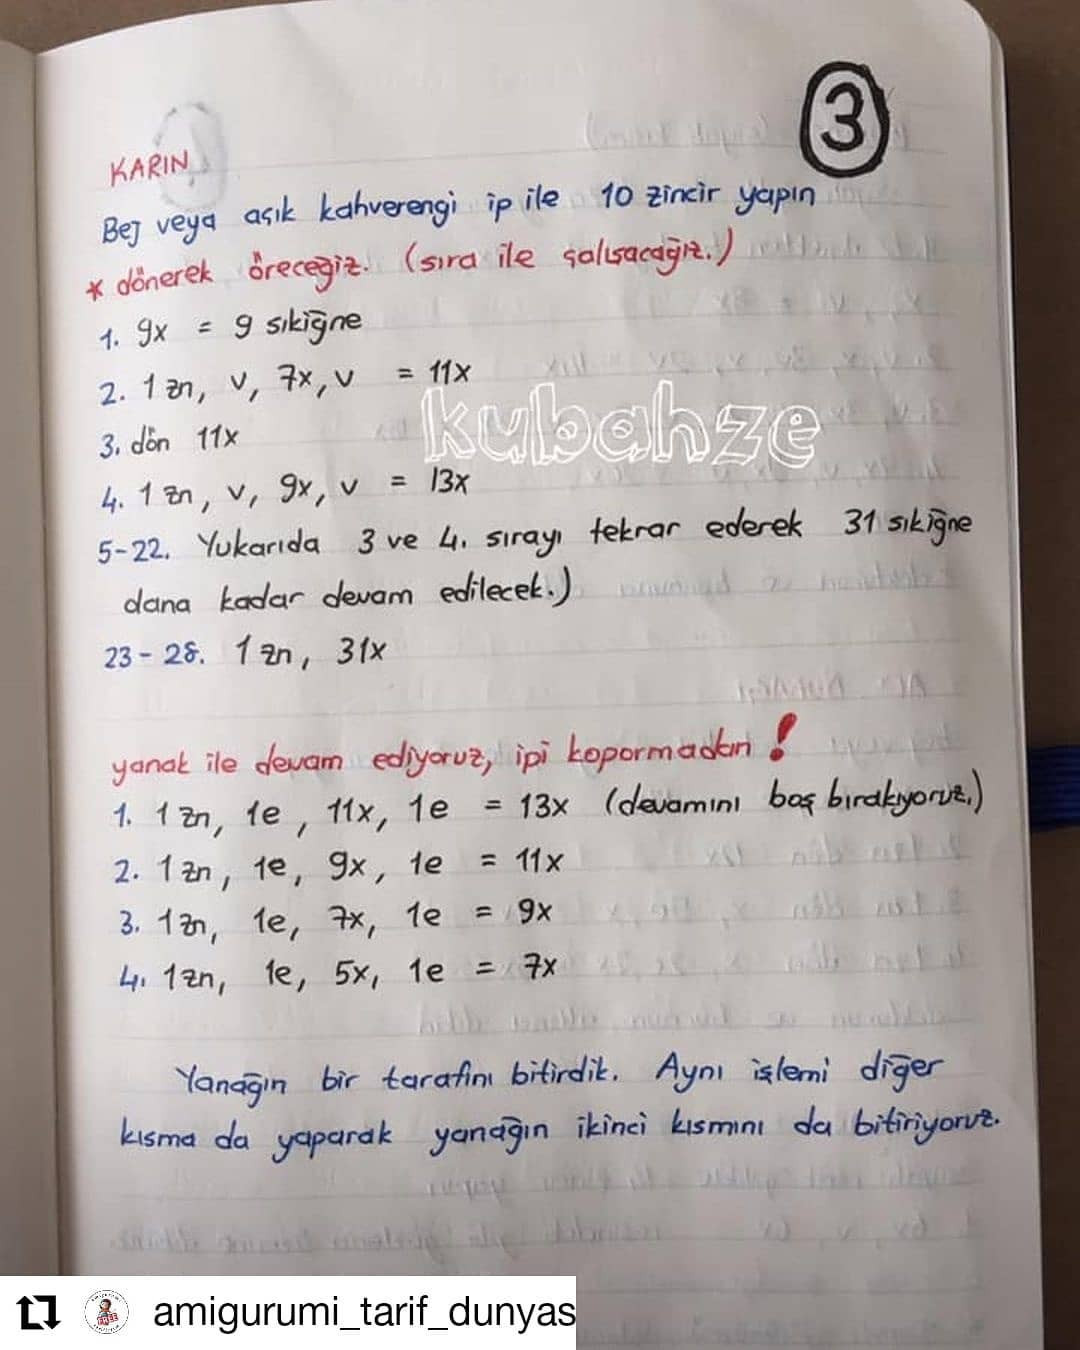 3
KARIN
Bej veya açık kahverengi ip ile 10 zincir yapın
* dönerek öreceğiz. (sıra ile çalışacağız.)
1. 9x = 9 sıkiğne
2. 1 zn, v, 7x, v = 11x
3. dön 11x
kubahze
4. 1 zn, v, 9x, v = 13x
5-22. Yukarıda 3 ve 4. sırayı tekrar ederek 31 sıkiğne
dana kadar devam edilecek.)
23 - 28. 1 zn, 31x
yanak ile devam ediyoruz, ipi kopormadan !
1. 1 zn, 1e, 11x, 1e = 13x (devamını boş bırakıyoruz.)
2. 1 zn, 1e, 9x, 1e = 11x
3. 1zn, 1e, 7x, 1e = 9x
4. 1zn, 1e, 5x, 1e = 7x
Yanağın bir tarafını bitirdik. Aynı işlemi diğer
kısma da yaparak yanağın ikinci kısmını da bitiriyoruz.
amigurumi_tarif_dunyas